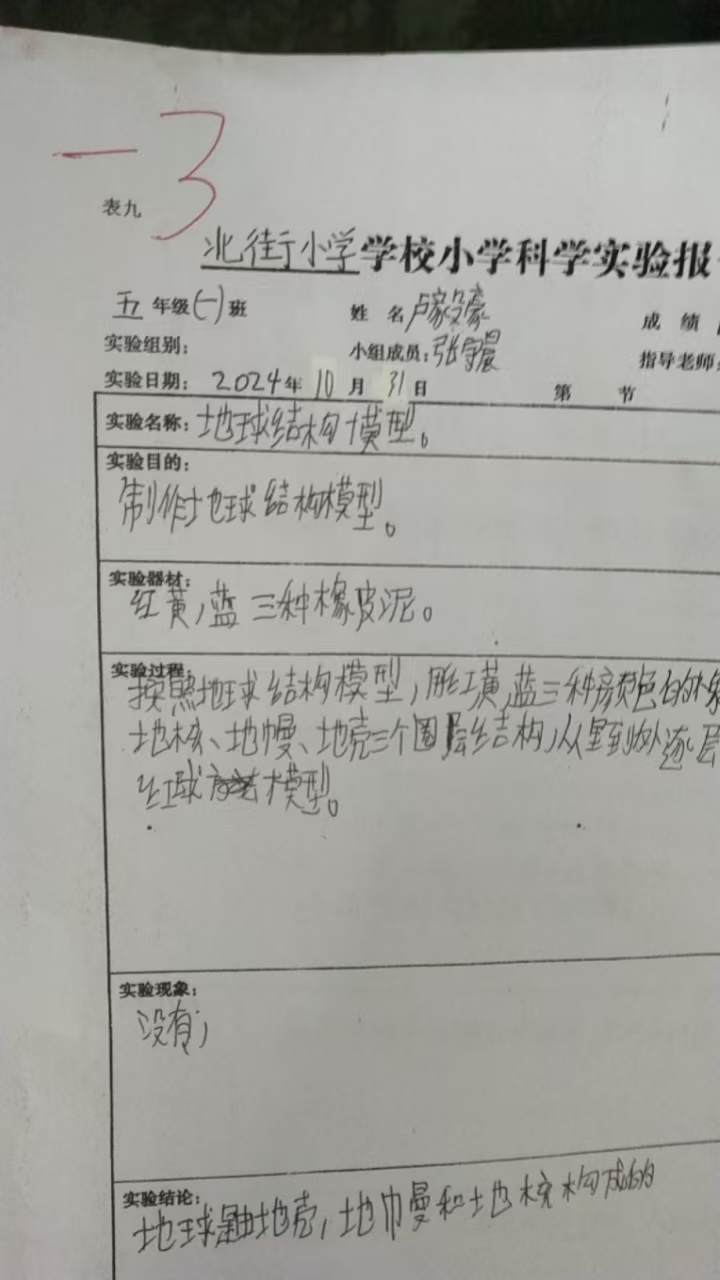 -3
表九
北街小学学校小学科学实验报
五年级(一)班 姓 名 卢家毅豪 成 绩
实验组别: 小组成员:张宇晨 指导老师:
实验日期: 2024年10月31日 第 节
实验名称:地球结构模型。
实验目的:
制作地球结构模型。
实验器材:
红黄,蓝三种橡皮泥。
实验过程:
按照地球结构模型,用红黄,蓝三种颜色的橡
地核、地幔、地壳三个圈层结构,从里到外逐层
球模型。
实验现象:
没有,
实验结论:
地球是由地壳,地幔和地核构成的